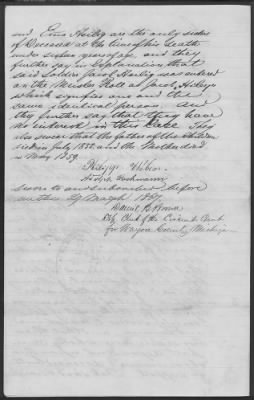 and Enos Heilig are the only sisters
of Deceased at the time of his death
under sixteen years of age, and they
further say in Explanation that
said Soldier Jacob Heilig was entered
on the Muster Roll as Jacob
which signifies one and the
same identical person. And
they further say that they have
no interest in this Case. They
also swear that the father of the children
died in July 1855. and the Mother died
in May 1859.
Philipp Weber
Adolph
Sworn to and subscribed before
me this 27 March 186
Dpty Clerk of the Circuit Court
for Wayne County, Michigan